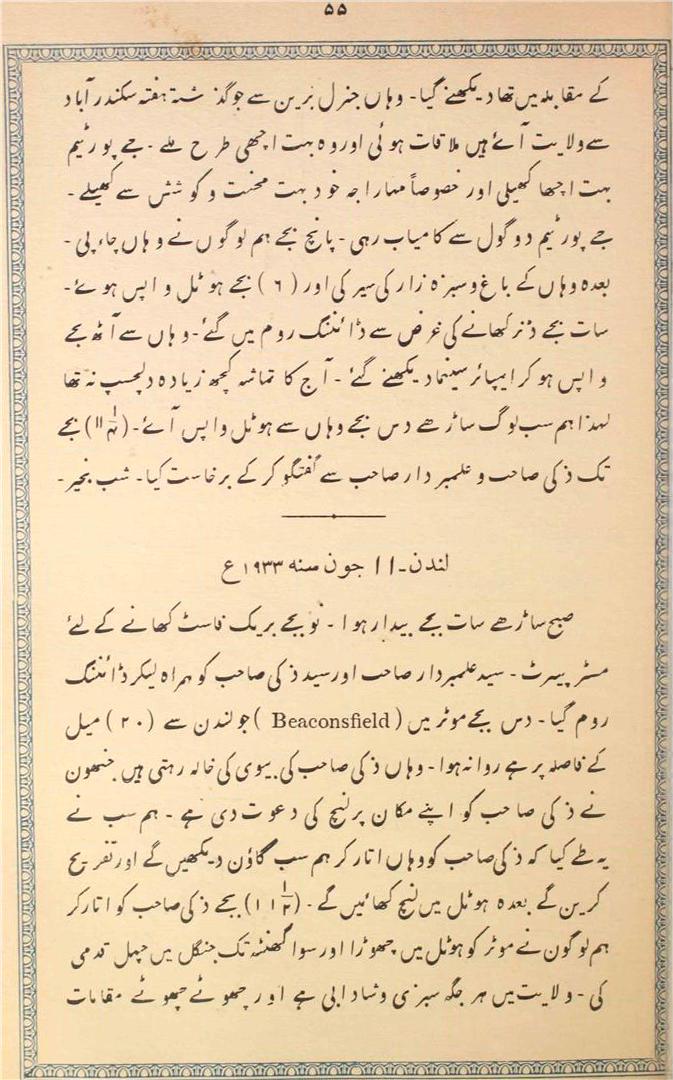 ۵۵
کے مقابلہ میں تھا دیکھنے گیا۔ وہاں جنرل برین سے جو گذشتہ ہفتہ سکندرآباد
سے ولایت آئے ہیں ملاقات ہوئی اور وہ بہت اچھی طرح ملے ۔ جے پور ٹیم
بہت اچھا کھیلی اور خصوصاً مہاراجہ خود بہت محنت و کوشش سے کھیلے ۔
جے پور ٹیم دو گول سے کامیاب رہی ۔ پانچ بجے ہم لوگوں نے وہاں چاء پی ۔
بعدہ وہاں کے باغ و سبزہ زار کی سیر کی اور (۶) بجے ہوٹل واپس ہوئے ۔
سات بجے ڈنر کھانے کی غرض سے ڈائننگ روم میں گئے ۔ وہاں سے آٹھ بجے
واپس ہو کر ایمپائر سینما دیکھنے گئے ۔ آج کا تماشہ کچھ زیادہ دلچسپ نہ تھا
لہذا ہم سب لوگ ساڑھے دس بجے وہاں سے ہوٹل واپس آئے ۔ بجے
تک ذکی صاحب و علمبردار صاحب سے گفتگو کر کے برخاست کیا ۔ شب بخیر ۔
لندن ۔ ۱۱ جون سنہ ۱۹۳۳ ع
صبح ساڑھے سات بجے بیدار ہوا ۔ نو بجے بریک فاسٹ کھانے کے لئے
مسٹر پیسرٹ ۔ سید علمبردار صاحب اور سید ذکی صاحب کو ہمراہ لیکر ڈائننگ
روم گیا ۔ دس بجے موٹر میں ( Beaconsfield ) جو لندن سے (۲۰) میل
کے فاصلہ پر ہے روانہ ہوا ۔ وہاں ذکی صاحب کی بیوی کی خالہ رہتی ہیں جنھون
نے ذکی صاحب کو اپنے مکان پر لنچ کی دعوت دی ہے ۔ ہم سب نے
یہ طے کیا کہ ذکی صاحب کو وہاں اتار کر ہم سب گاؤن دیکھیں گے اور تفریح
کرین گے بعدہ ہوٹل میں لنچ کھائیں گے ۔ (۱۱½) بجے ذکی صاحب کو اتار کر
ہم لوگون نے موٹر کو ہوٹل میں چھوڑا اور سوا گھنٹہ تک جنگل میں چہل قدمی
کی ۔ ولایت میں ہر جگہ سبزی و شادابی ہے اور چھوٹے چھوٹے مقامات